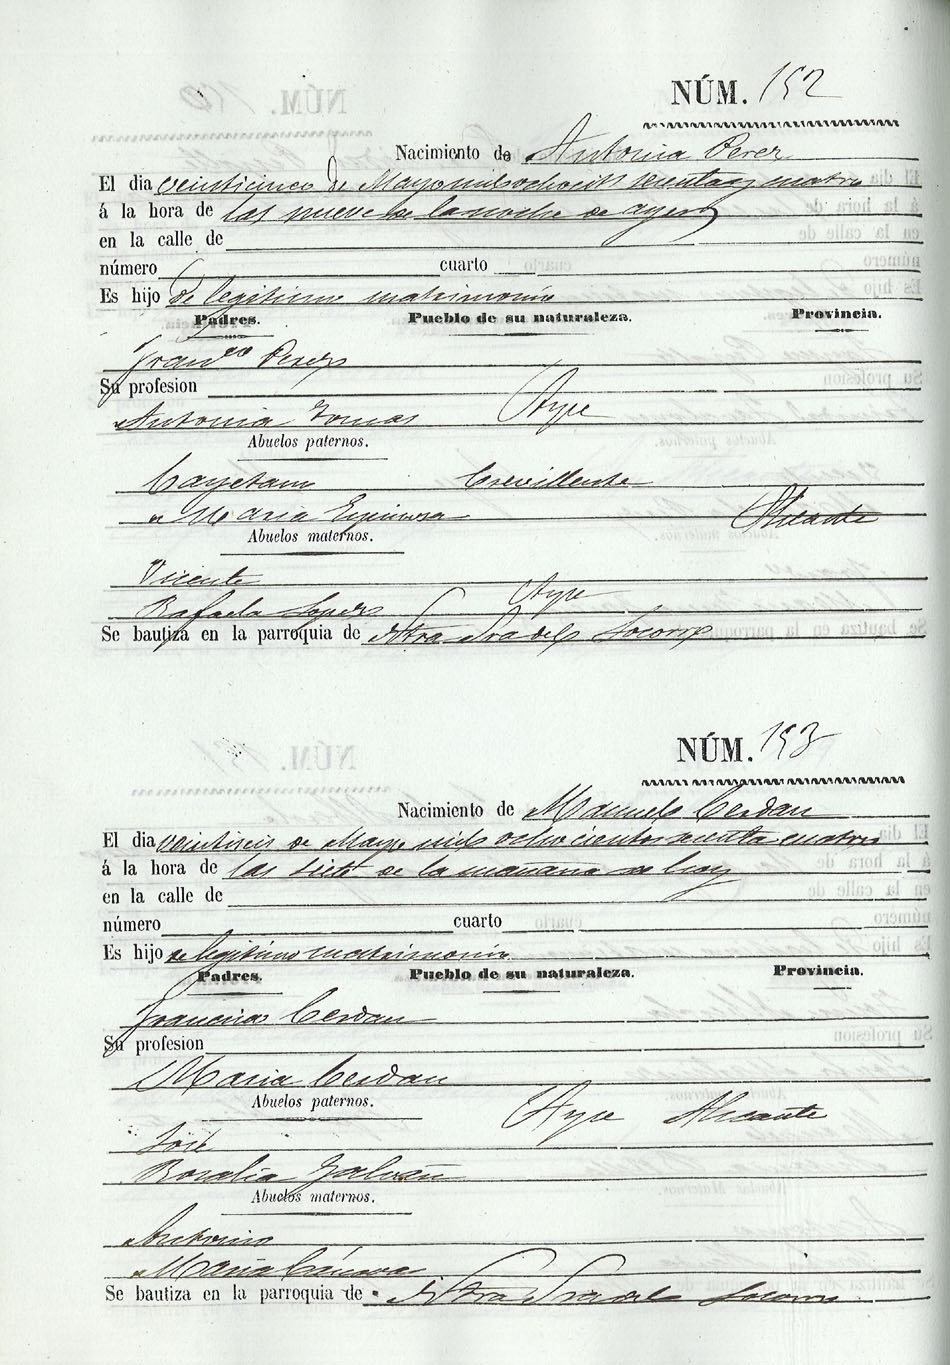 NÚM. 152
Nacimiento de Antonia Perez
El dia veinticinco de Mayo mil ochocits sesenta y cuatro
á la hora de las nueve de la noche de ayer
en la calle de
número cuarto
Es hijo de legitimo matrimonio
Padres. Pueblo de su naturaleza. Provincia.
Franco Perez
Su profesion
Antonia Tomas Aspe
Abuelos paternos.
Cayetano Crevillente
María Espinosa Alicante
Abuelos maternos.
Vicente
Rafaela Lopez Aspe
Se bautiza en la parroquia de Ntra Sra del Socorro
NÚM. 153
Nacimiento de Manuela Cerdan
El dia veintiseis de Mayo mil ochocientos sesenta cuatro
á la hora de las siete de la mañana de hoy
en la calle de
número cuarto
Es hijo de legitimo matrimonio
Padres. Pueblo de su naturaleza. Provincia.
Francisco Cerdan
Su profesion
Maria Cerdan
Abuelos paternos. Aspe Alicante
José
Rosalia Galvañ
Abuelos maternos.
Antonio
Maria Cánovas
Se bautiza en la parroquia de Ntra Sra del Socorro